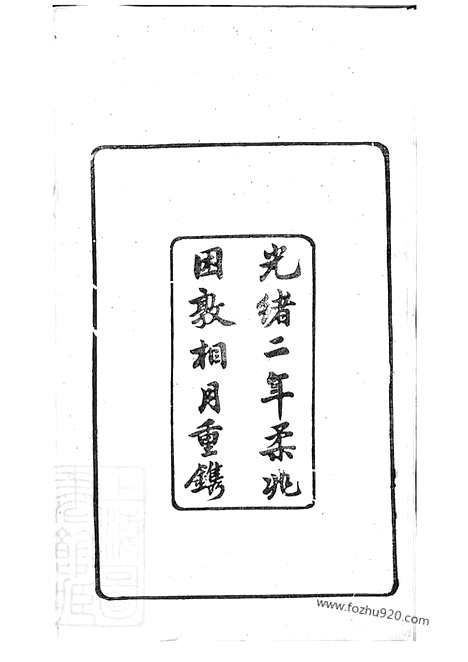 光緒二年柔兆
困敦相月重鐫
www.fozhu920.com